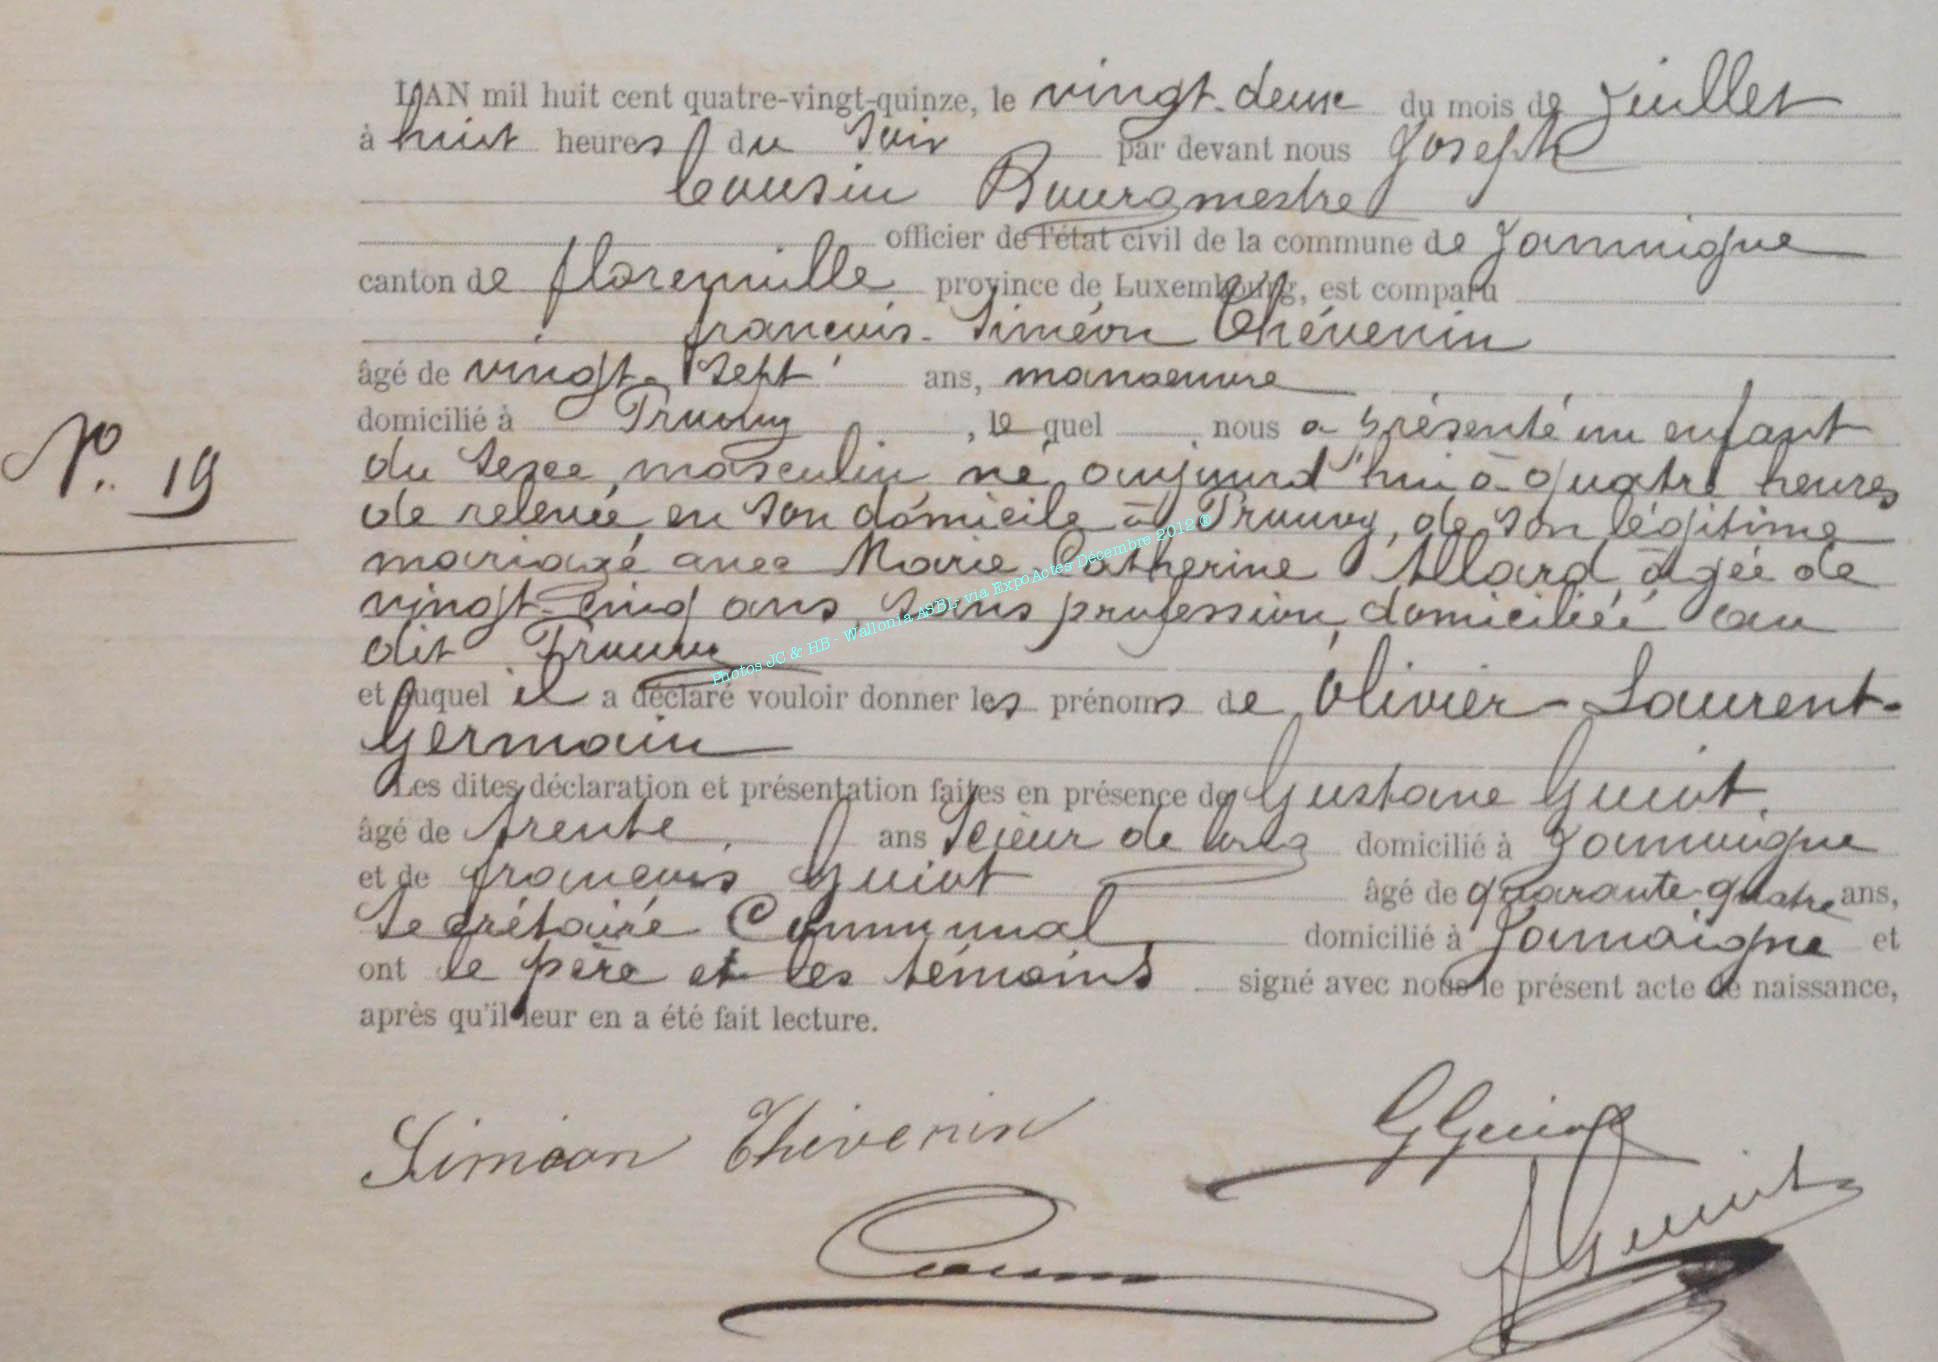 L'AN mil huit cent quatre-vingt-quinze, le vingt-deux du mois de Juillet
à huit heures du Soir par devant nous Joseph
Cousin Bourgmestre
officier de l'état civil de la commune de Jamoigne
canton de florenville, province de Luxembourg, est comparu
françois-Siméon Thévenin
âgé de vingt-Sept ans, manoeuvre
domicilié à Prouvy, le quel, nous a présenté un enfant
N°. 19
du Sexe masculin né aujourd'hui à quatre heures
de relevée en Son domicile à Prouvy, de Son légitime
mariage avec Marie Catherine Allard, âgée de
vingt-cinq ans, Sans profession, domiciliée au
dit Prouvy
et auquel il a déclaré vouloir donner les prénoms de Olivier-Laurent-
Germain
Les dites déclaration et présentation faites en présence de Gustave Guiot,
âgé de trente, ans Scieur de long domicilié à Jamoigne
et de françois Guiot âgé de quarante-quatre ans,
Secrétaire Communal, domicilié à Jamoigne et
ont le père et les témoins signé avec nous le présent acte de naissance,
après qu'il leur en a été fait lecture.
Siméon Thévenin
GGuiot
Cousin
fGuiot
Photos JC & HB - Wallonia ASBL- via ExpoActes Décembre 2012 ®